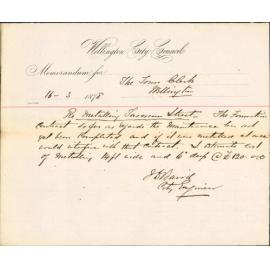 Wellington City Council
Memorandum for
The Town Clerk
Wellington
16-3 1878
Re Metalling Street. The Formation
Contract so far as regards the Maintenance has not
yet been Completed and if it was metalled at once
would interfere with that Contract. I estimate cost
of Metalling 14ft wide and 6" deep @ £120.0.0
City Engineer